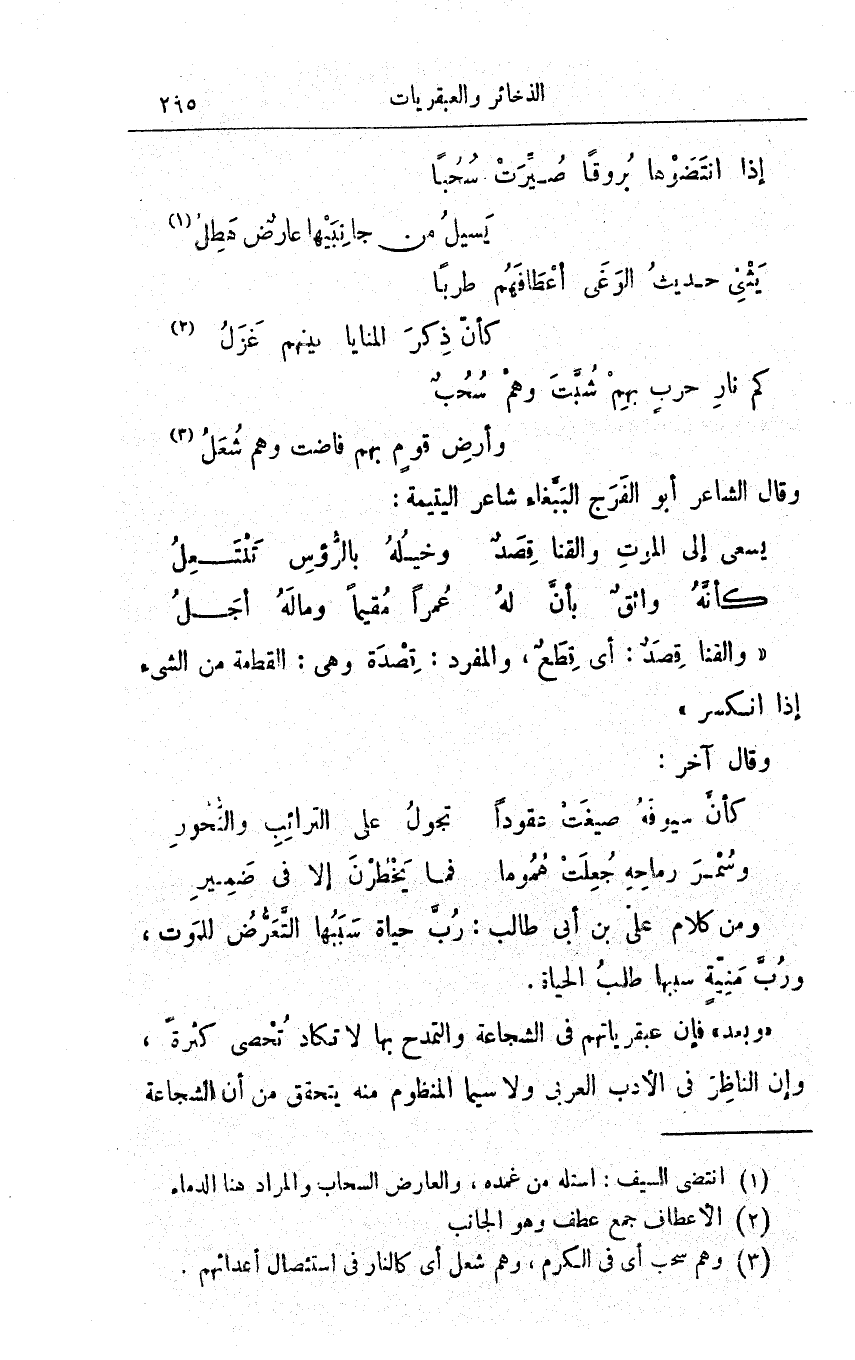 الذخائر والعبقريات ٢٩٥
إذا انتَضَوْها بُروقًا صُيِّرَتْ سُحُبًا
يَسيلُ من جانِبَيْها عارضٌ هَطِلُ (١)
يَثْنِي حديثُ الوَغَى أعْطَافَهُم طربًا
كأنّ ذِكرَ المنايا بينهم غَزَلُ (٢)
كم نارِ حربٍ بهِمْ شُبَّتَ وهمْ سُحُبٌ
وأرضِ قومٍ بهم فاضت وهم شُعَلُ (٣)
وقال الشاعر أبو الفَرَج البَبَّغاء شاعر اليتيمة :
يسعى إلى الموتِ والقنا قِصَدٌ وخيلُهُ بالرُّؤسِ تَنْتَعِلُ
كأنَّهُ واثقٌ بأنَّ لهُ عُمراً مُقيماً ومالَهُ أجَلُ
« والقنا قِصَدٌ : أى قِطَعٌ ، والمفرد : قِصْدَة وهى : القطعة من الشىء
إذا انكسر »
وقال آخر :
كأنَّ سيوفَهُ صيغَتْ عقوداً تجولُ على الترائبِ والنُّحُورِ
وسُمْرَ رماحِهِ جُعِلَتْ هُمُوما فما يَخْطُرْنَ إلا فى ضَمِيرِ
ومن كلام علىّ بن أبى طالب : رُبَّ حياة سَبَبُها التَّعَرُّضُ للموت ،
ورُبَّ مَنِيّةٍ سببها طلبُ الحياة .
«وبعد» فإن عبقرياتهم فى الشجاعة والتمدح بها لا تكاد تُحْصى كثرةً ،
وإن الناظِرَ فى الأدب العربى ولا سيما المنظوم منه يتحقق من أن الشجاعة
(١) انتضى السيف : استله من غمده ، والعارض السحاب والمراد هنا الدماء
(٢) الأعطاف جمع عطف وهو الجانب
(٣) وهم سحب أى فى الكرم ، وهم شعل أى كالنار فى استئصال أعدائهم .